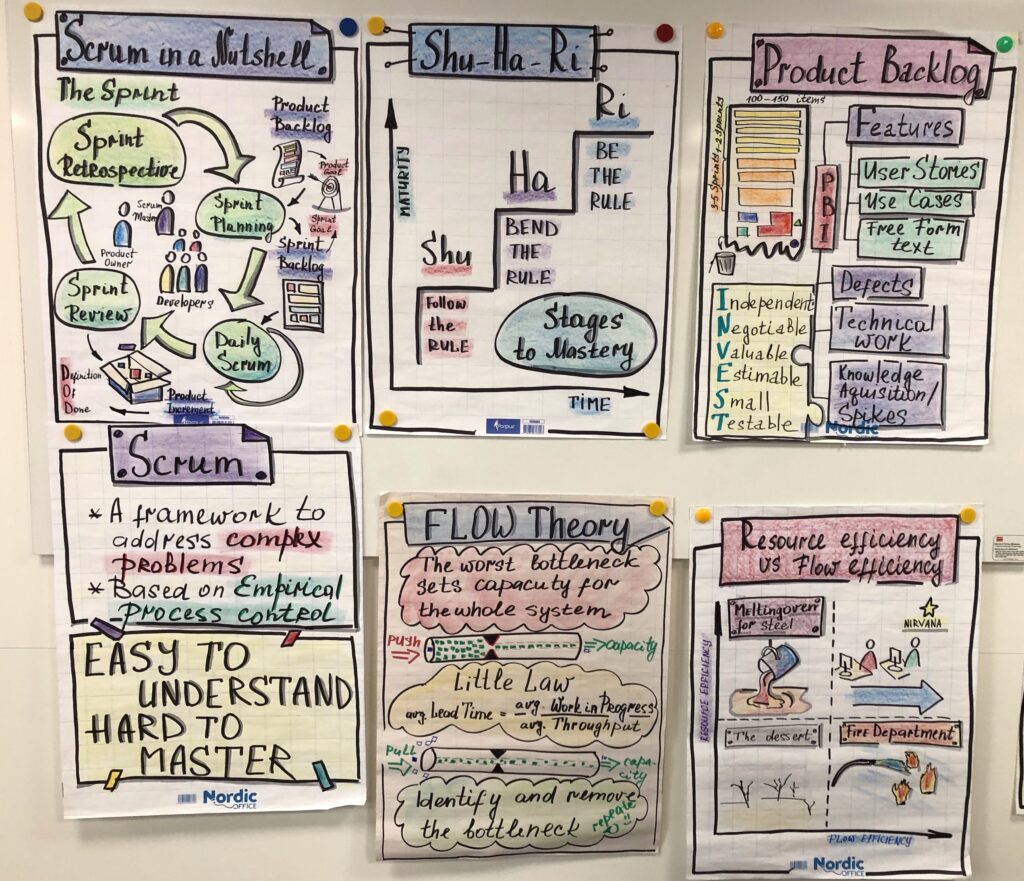 Scrum in a Nutshell
The Sprint
Sprint
Retrospective
Product
Backlog
Product
Goal
Scrum
Master
Sprint
Planning
Sprint
Goal
Product
Owner
Sprint
Backlog
Developers
Sprint
Review
Daily
Scrum
Definition
Of
Done
Product
Increment
Shu-Ha-Ri
MATURITY
Ri
BE
THE
RULE
Ha
BEND
THE
RULE
Shu
Follow
the
RULE
Stages
to Mastery
TIME
forpus
Product Backlog
100-150 items
1-2 Sprints
3-5 Sprints
PBI
Features
User Stories
Use Cases
Free Form
text
Defects
Technical
WORK
Knowledge
Aquisition/
Spikes
Independent
Negotiable
Valuable
Estimable
Small
Testable
Nordic
Scrum
* A framework to
address complex
problems
* Based on Empirical
Process control
EASY TO
UNDERSTAND
HARD TO
MASTER
Nordic
OFFICE
FLOW Theory
The worst bottleneck
sets capacity for
the whole system
PUSH
capacity
Little Law
avg. Lead Time = avg. Work in Progress
avg. Throughput
Pull
capa-
city
Identify and remove
the bottleneck
repeat
Resource efficiency
vs Flow efficiency
RESOURCE EFFICIENCY
Meltingoven
for steel
NIRVANA
The dessert
Fire Department
FLOW EFFICIENCY
Nordic
OFFICE